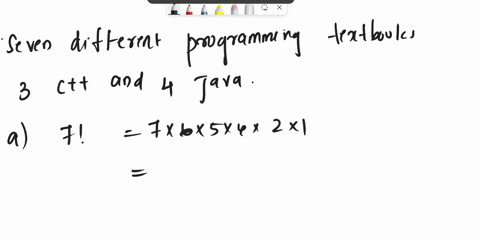 Seven different programming textbooks
3 C++ and 4 Java.
a) 7! = 7 × 6 × 5 × 4 × 2 × 1
=